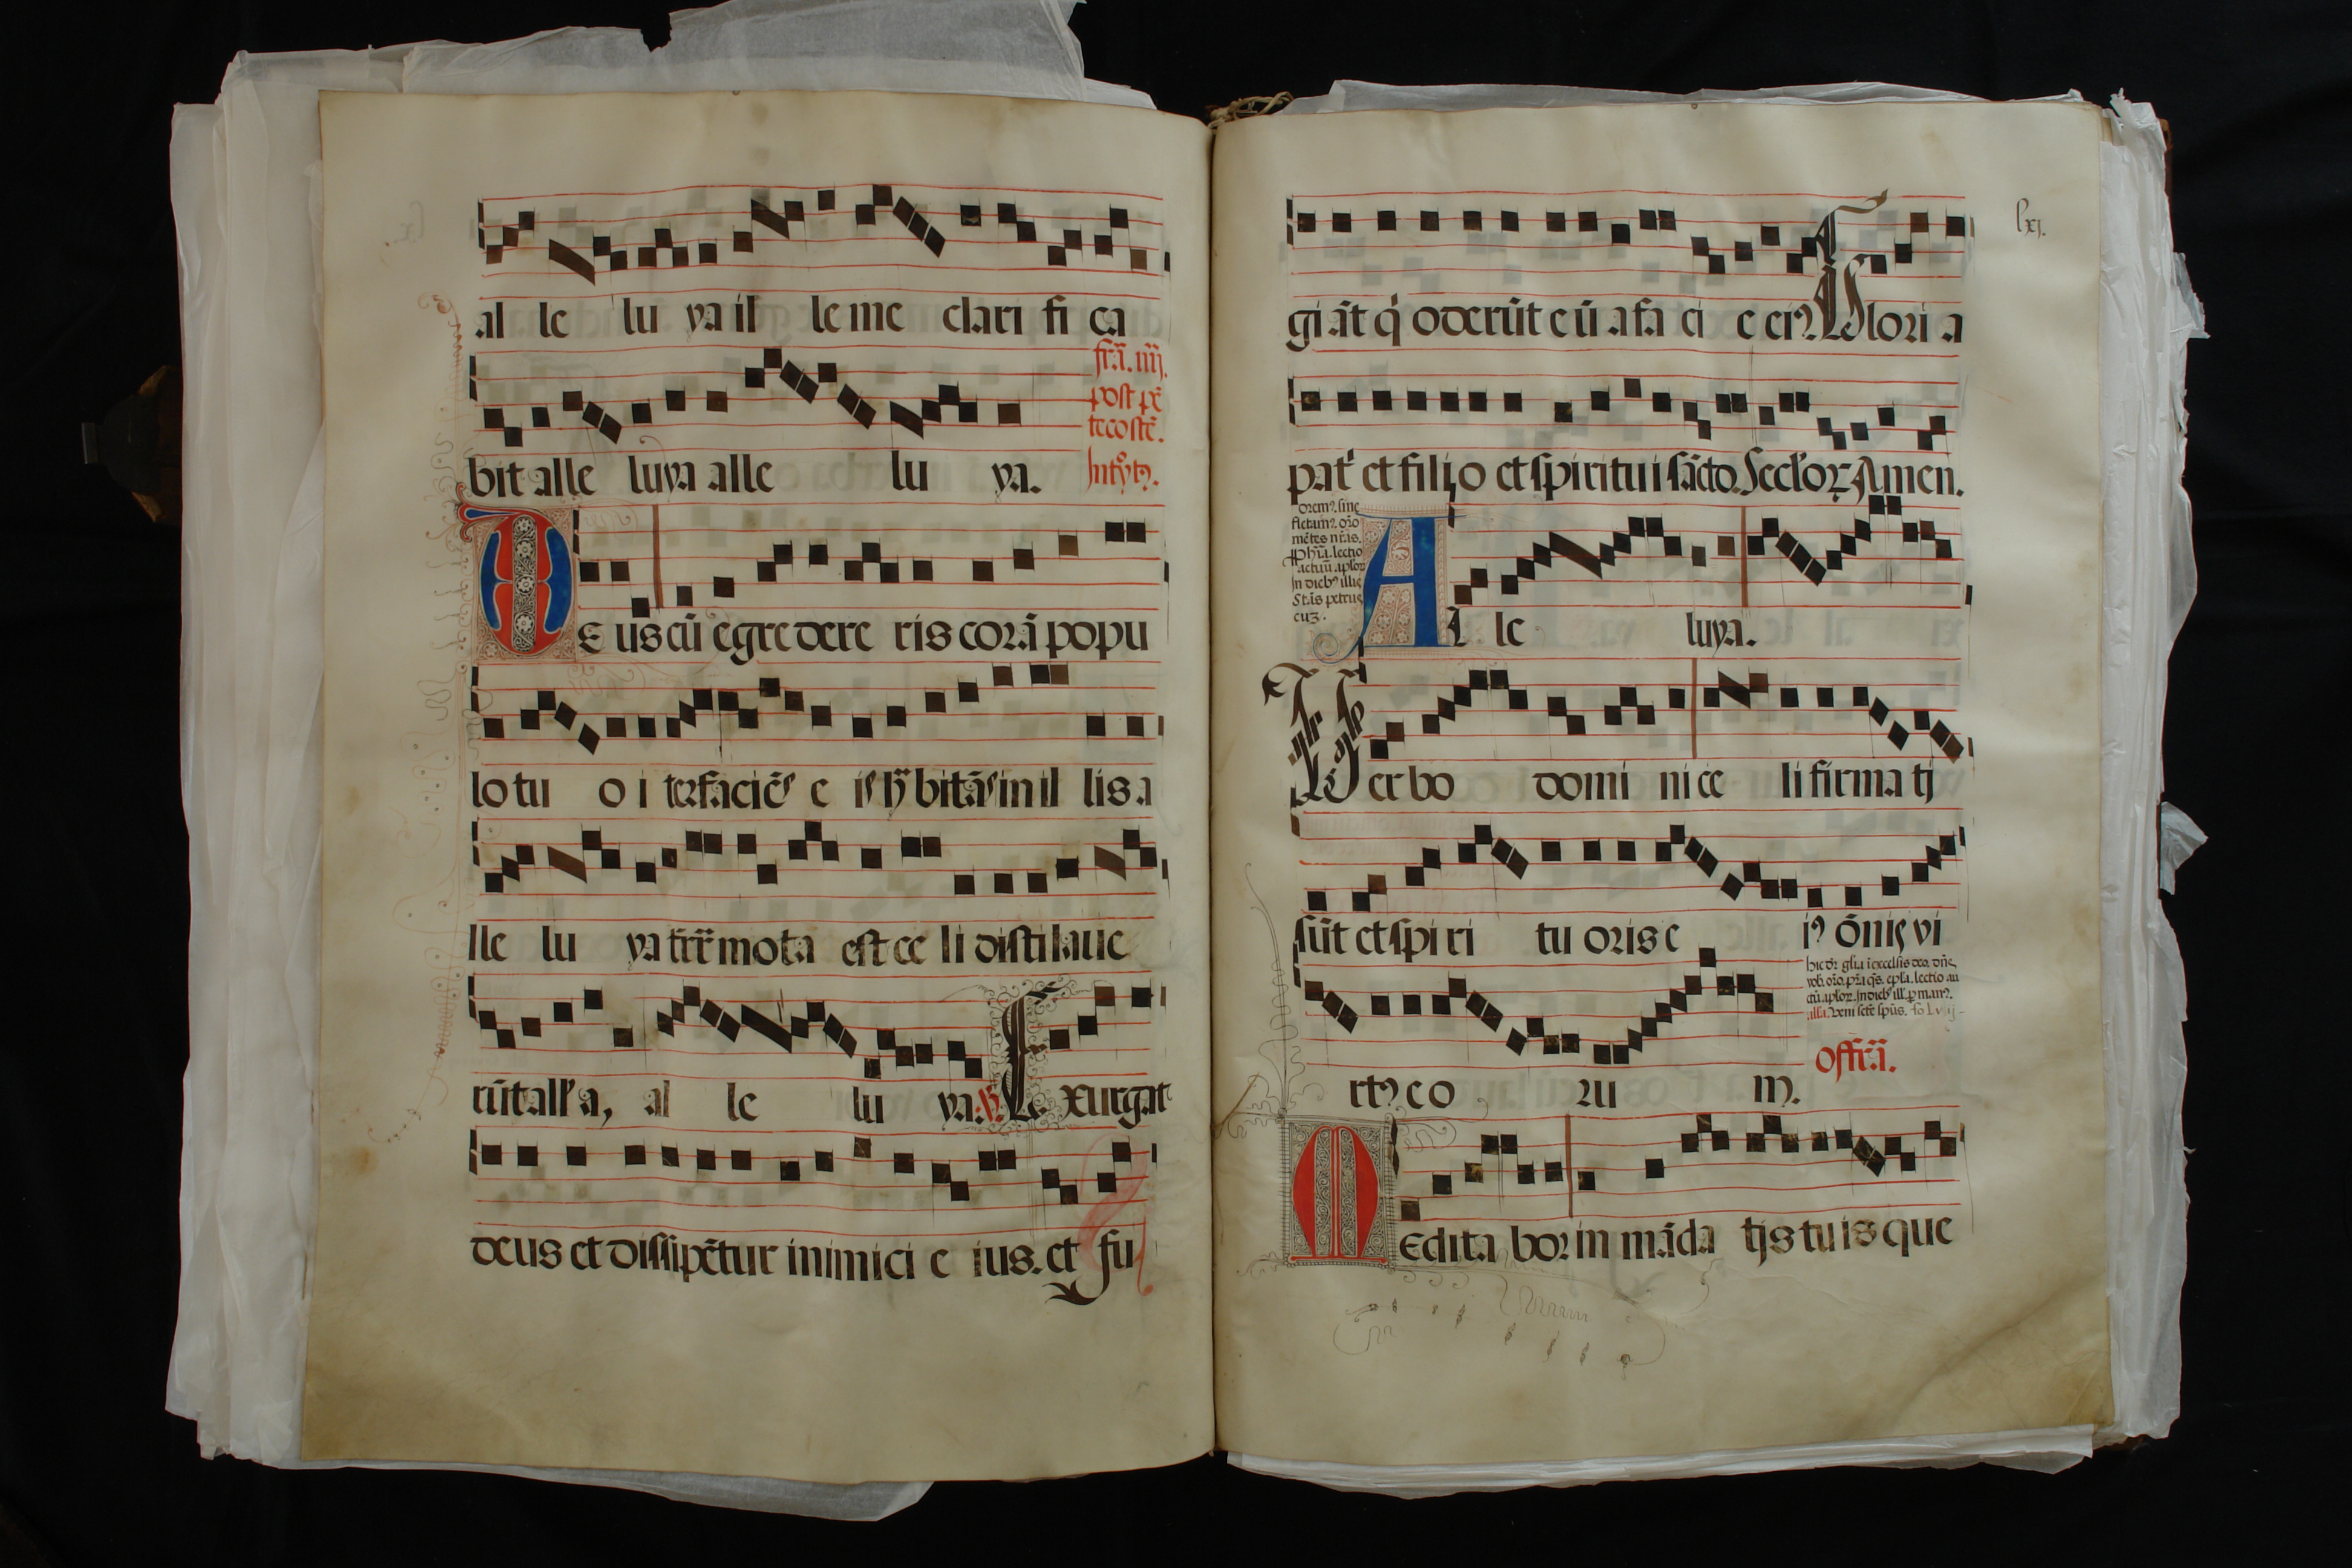 al le lu ya il le me clari fi ca
fr̃a. iiij.
post pẽ
tecostẽ.
bit alle luya alle lu ya.
Introytꝰ.
DE us cũ egre dere ris corã popu
lo tu o i ter faciẽs e is hãbitãs in il lis a
lle lu ya terr̃ mota est ce li distilaue
rũt all'a, al le lu ya. ℣. Exurgat
deus et dissipẽtur inimici e ius. et fu
lxj.
giãt q̇ oderũt eũ a fa ci e eiꝰ Glori a
patˀ et fili o et spiritui sãcto. Secl'oꝝ Amen.
oremꝰ. sine
flectamꝰ. oro
mẽtes nr̃as.
ꝓph̃ia. lectio
actuũ aplor̃
In diebꝰ illis
Stãs petrus
cuȝ.
Al le luya.
Verbo domi ni ce li firma tj
sũt et spi ri tu oris e iꝰ õnis vi
hic dr̃ glia ĩ excelsis deo. dñs
vob. oro. pr̃a q̃s. epla. lectio au
ctũ aplor̃. In dieb̃ ill. ꝑ manꝰ.
alla. Veni sctẽ spũs. fo Lviij.
rtꝰ co ru m.
Offr̃a.
MEdita bor in mãda tjs tuis que